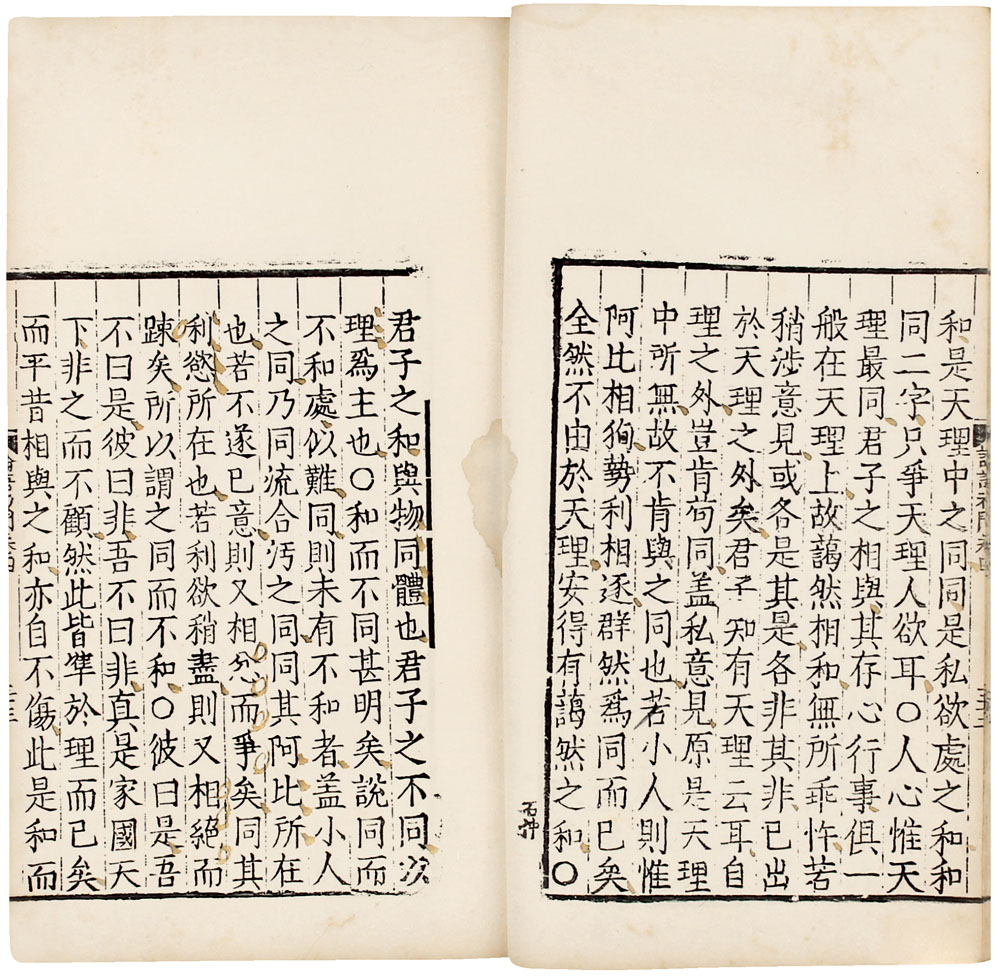 和是天理中之同同是私欲處之和和
同二字只爭天理人欲耳〇人心惟天
理最同君子之相與其存心行事俱一
般在天理上故藹然相和無所乖忤若
稍涉意見或各是其是各非其非已出
於天理之外矣君子知有天理云耳自
理之外豈肯苟同盖私意見原是天理
中所無故不肯與之同也若小人則惟
阿比相狥勢利相逐群然爲同而已矣
全然不由於天理安得有藹然之和〇
君子之和與物同體也君子之不同以
理爲主也〇和而不同甚明矣說同而
不和處似難同則未有不和者盖小人
之同乃同流合汚之同同其阿比所在
也若不遂已意則又相忿而爭矣同其
利慾所在也若利欲稍盡則又相絕而
踈矣所以謂之同而不和〇彼曰是吾
不曰是彼曰非吾不曰非真是家國天
下非之而不顧然此皆凖於理而已矣
而平昔相與之和亦自不傷此是和而